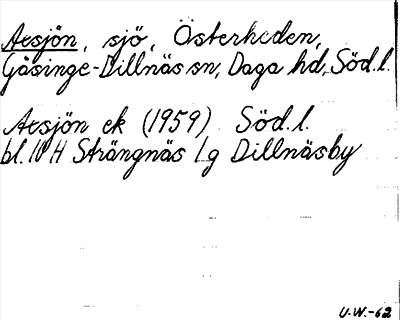 Aesjön, sjö, Österheden,
Gåsinge-Dillnäs sn, Daga hd, Söd.l.
Aesjön ek (1959) Söd.l.
bl. 10 H Strängnäs 1g Dillnäsby
U.W.-62